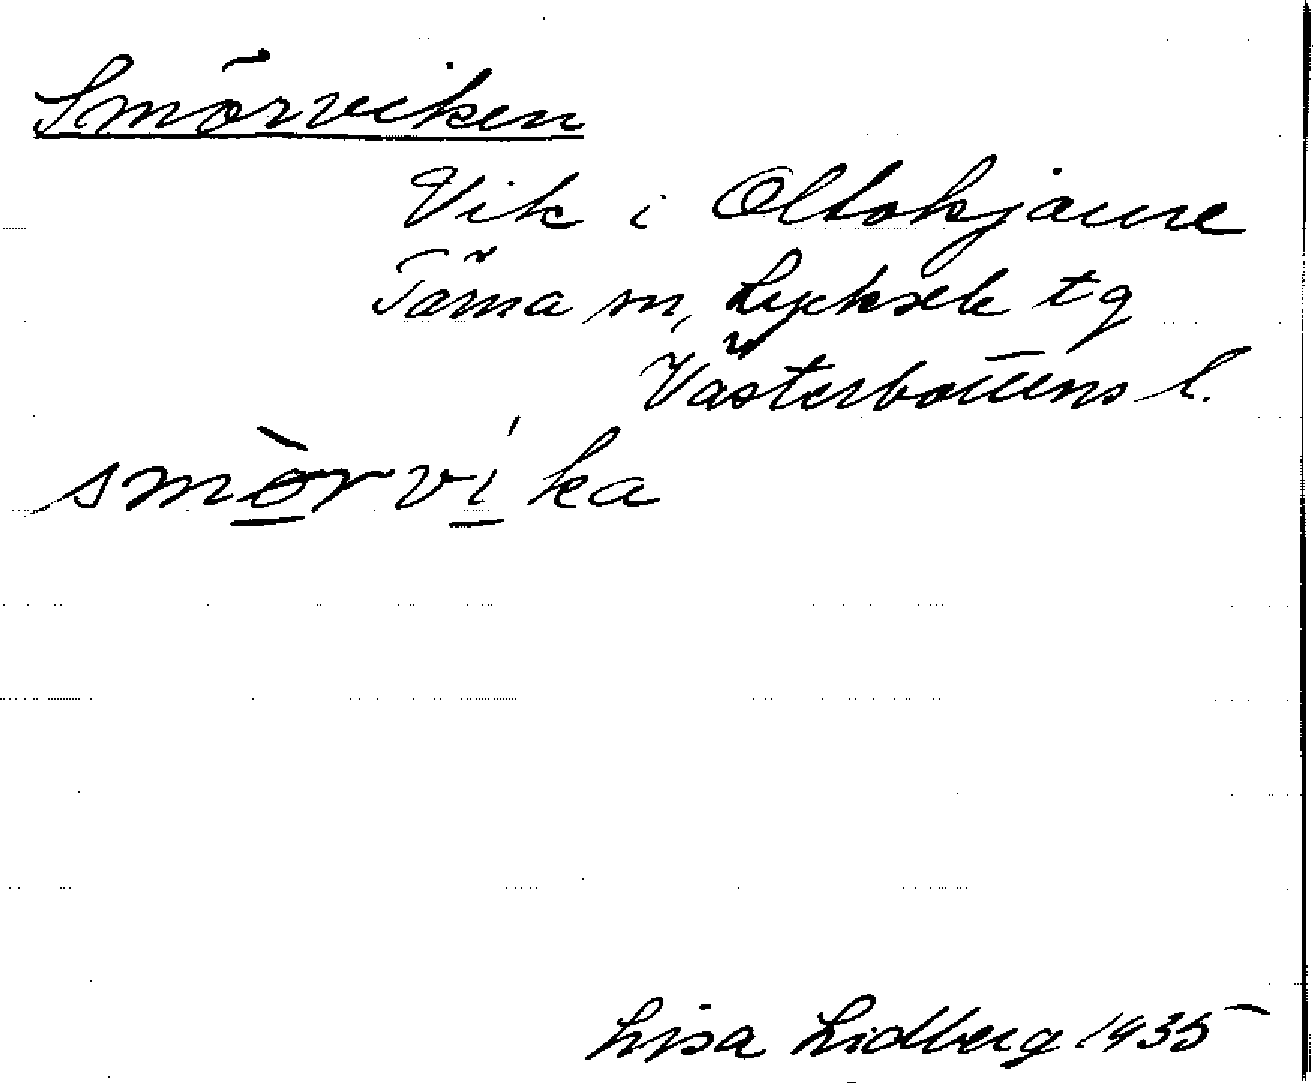 Smörviken
Vik i Oltokjaure
Tärna sn, Lycksele tg
Västerbottens l.
smö̀rvíka
Lisa Lidberg 1935